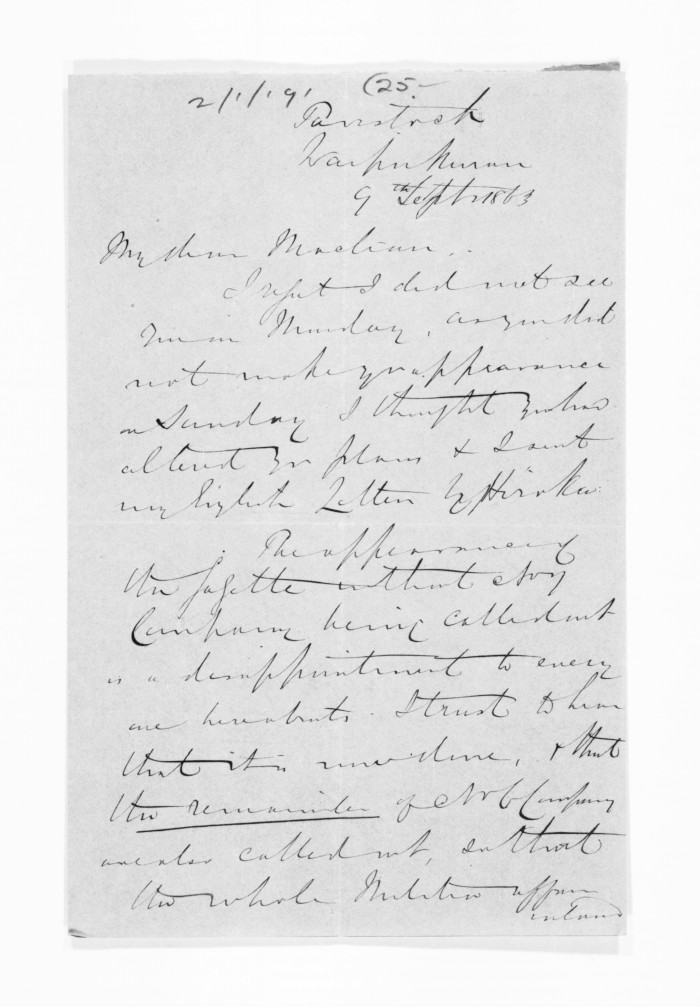 2/1/191 (25.-
Tavistock
Waipukurau
9th Sept 1863
My dear Maclean..
I regret I did not see
you on Monday, as you did
not make yr appearance
on Sunday I thought you had
altered yr plans & I sent
my English Letters by Hiroka
The appearance of
the Gazette without No 4
Company being called out
is a disappointment to every
one hereabouts. I trust to hear
that it is now done, & that
the remainder of No 6 Company
are also called out, so that
the whole Militia
inland